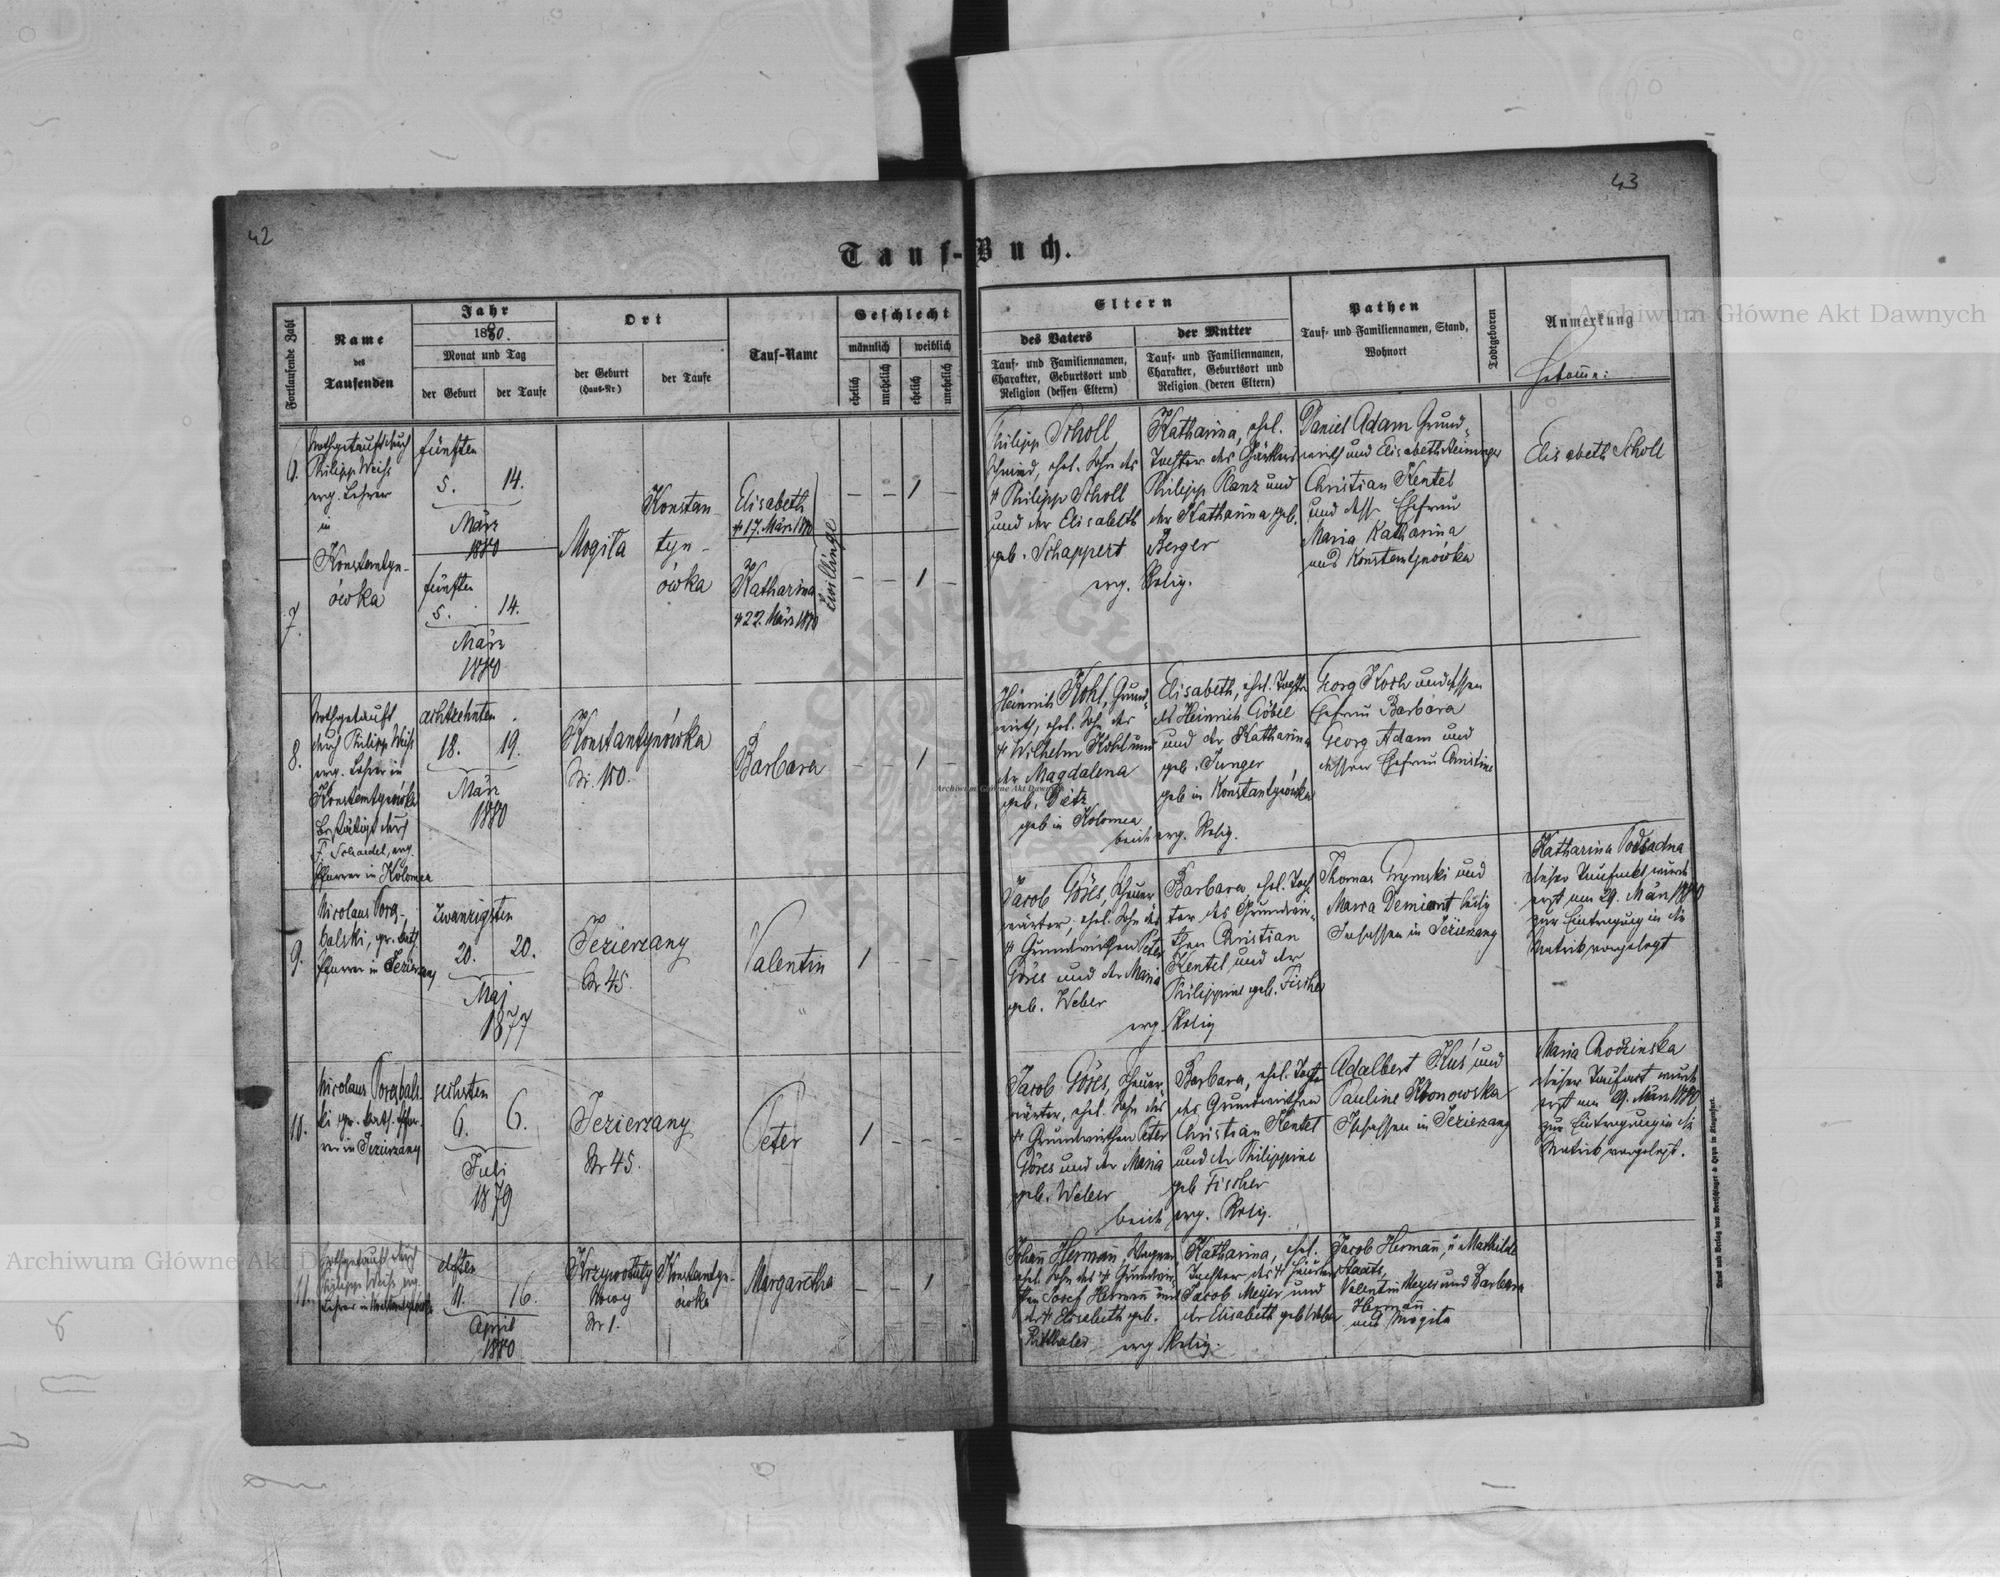 42
43
Tauf-Buch.
Fortlaufende Zahl
Name
des
Taufenden
Jahr
1880.
Monat und Tag
der Geburt
der Taufe
Ort
der Geburt
(Haus-Nr.)
der Taufe
Tauf-Name
Geschlecht
männlich
weiblich
ehelich
unehelich
ehelich
unehelich
Eltern
des Vaters
Tauf- und Familiennamen,
Charakter, Geburtsort und
Religion (dessen Eltern)
der Mutter
Tauf- und Familiennamen,
Charakter, Geburtsort und
Religion (deren Eltern)
Pathen
Tauf- und Familiennamen, Stand,
Wohnort
Todtgeboren
Anmerkung
Hebamme:
6.
Nothgetauft durch
Philipp Weihs
evg. Lehrer
in
Konstantyn-
ówka
fünften
5.
14.
März
1880
Mogiła
Konstan-
tyn-
ówka
Elisabeth
† 17. März 1880
Zwillinge
– – 1 –
Philipp Scholl
Schmied, ehel. Sohn des
† Philipp Scholl
und der Elisabeth
geb. Schappert
Katharina, ehel.
Tochter des
Philipp Planz und
der Katharina geb.
Berger
evg. Relig.
Daniel Adam Grund-
wirth und Elisabeth
Christian Kentel
und dess. Ehefrau
Maria Katharina
aus Konstantynówka
Elisabeth Scholl
7.
fünften
5.
14.
März
1880
Katharina
† 22. März 1880
– – 1 –
8.
Nothgetauft
durch Philipp Weihs
evg. Lehrer in
Konstantynówka
Bestätigt durch
F. Schaedel, evg.
Pfarrer in Kolomea
achtzehnten
18.
19.
März
1880
Konstantynówka
Nr. 150.
Barbara
– – 1 –
Heinrich Kohl, Grund-
wirth, ehel. Sohn des
† Wilhelm Kohl und
der Magdalena
geb. Dietz
geb in Kolomea
Elisabeth, ehel. Tochter
des Heinrich Göbel
und der Katharina
geb. Junger
geb in Konstantynówka
beide evg. Relig.
Georg Koch und dessen
Ehefrau Barbara
Georg Adam und
dessen Ehefrau Christine
9.
Nicolaus Porg-
balski, gr. kath.
Pfarrer in Jezierzany
zwanzigsten
20.
20.
Maj
1877
Jezierzany
Nr 45.
Valentin
1 – – –
Jacob Göres, Heuer-
wärter, ehel. Sohn des
† Grundwirthen Peter
Göres und der Maria
geb. Weber
Barbara, ehel. Toch-
ter des Grundwir-
then Christian
Kentel und der
Philippine geb. Fischer
evg Relig
Thomas Grymski und
Marra Demiant
Insassen in Jezierzany
Katharina Posadna
dieser Taufact wurde
erst am 29. März 1880
zur Eintragung in die
Matrik vorgelegt
10.
Nicolaus Porgbals-
ki gr. kath. Pfar-
rer in Jezierzany
sechsten
6.
6.
Juli
1879
Jezierzany
Nr 45.
Peter
1 – – –
Jacob Göres, Heuer-
wärter, ehel. Sohn des
† Grundwirthen Peter
Göres und der Maria
geb. Weber
Barbara, ehel. Tochter
des Grundwirthen
Christian Kentel
und der Philippine
geb Fischer
beide evg. Relig.
Adalbert Kuś und
Pauline Klonowska
Insassen in Jezierzany
Maria Chodzinska
dieser Taufact wurde
erst am 29. März 1880
zur Eintragung in die
Matrik vorgelegt.
11.
Nothgetauft durch
Philipp Weihs evg.
Lehrer in Konstantynówka
elften
11.
16.
April
1880
Krzyworóuty
Nowy
Nr 1.
Konstantyn-
ówka
Margaretha
– – 1 –
Johann Hermann, Wagner,
ehel. Sohn des † Grundwir-
then Josef Hermann und
der † Elisabeth geb.
Ritthaler
Katharina, ehel.
Tochter des †
Jacob Meyer und
der Elisabeth geb Weber
evg Relig.
Jacob Hermann, u Mathilde
Staats,
Valentin Meyer und Barbara
Hermann
aus Mogila
Druck und Verlag von Bertschinger & Heyn in Klagenfurt.
Archiwum Główne Akt Dawnych
Archiwum Główne Akt Dawnych
Archiwum Główne Akt Dawnych